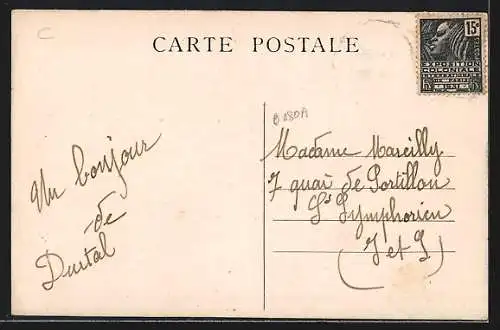 C
CARTE POSTALE
15c
EXPOSITION
COLONIALE
INTERNATIONALE
1931
B180A
Un bonjour
de
Durtal
Madame Mareilly
7 quai de Portillon
St Symphorien
(I et L)